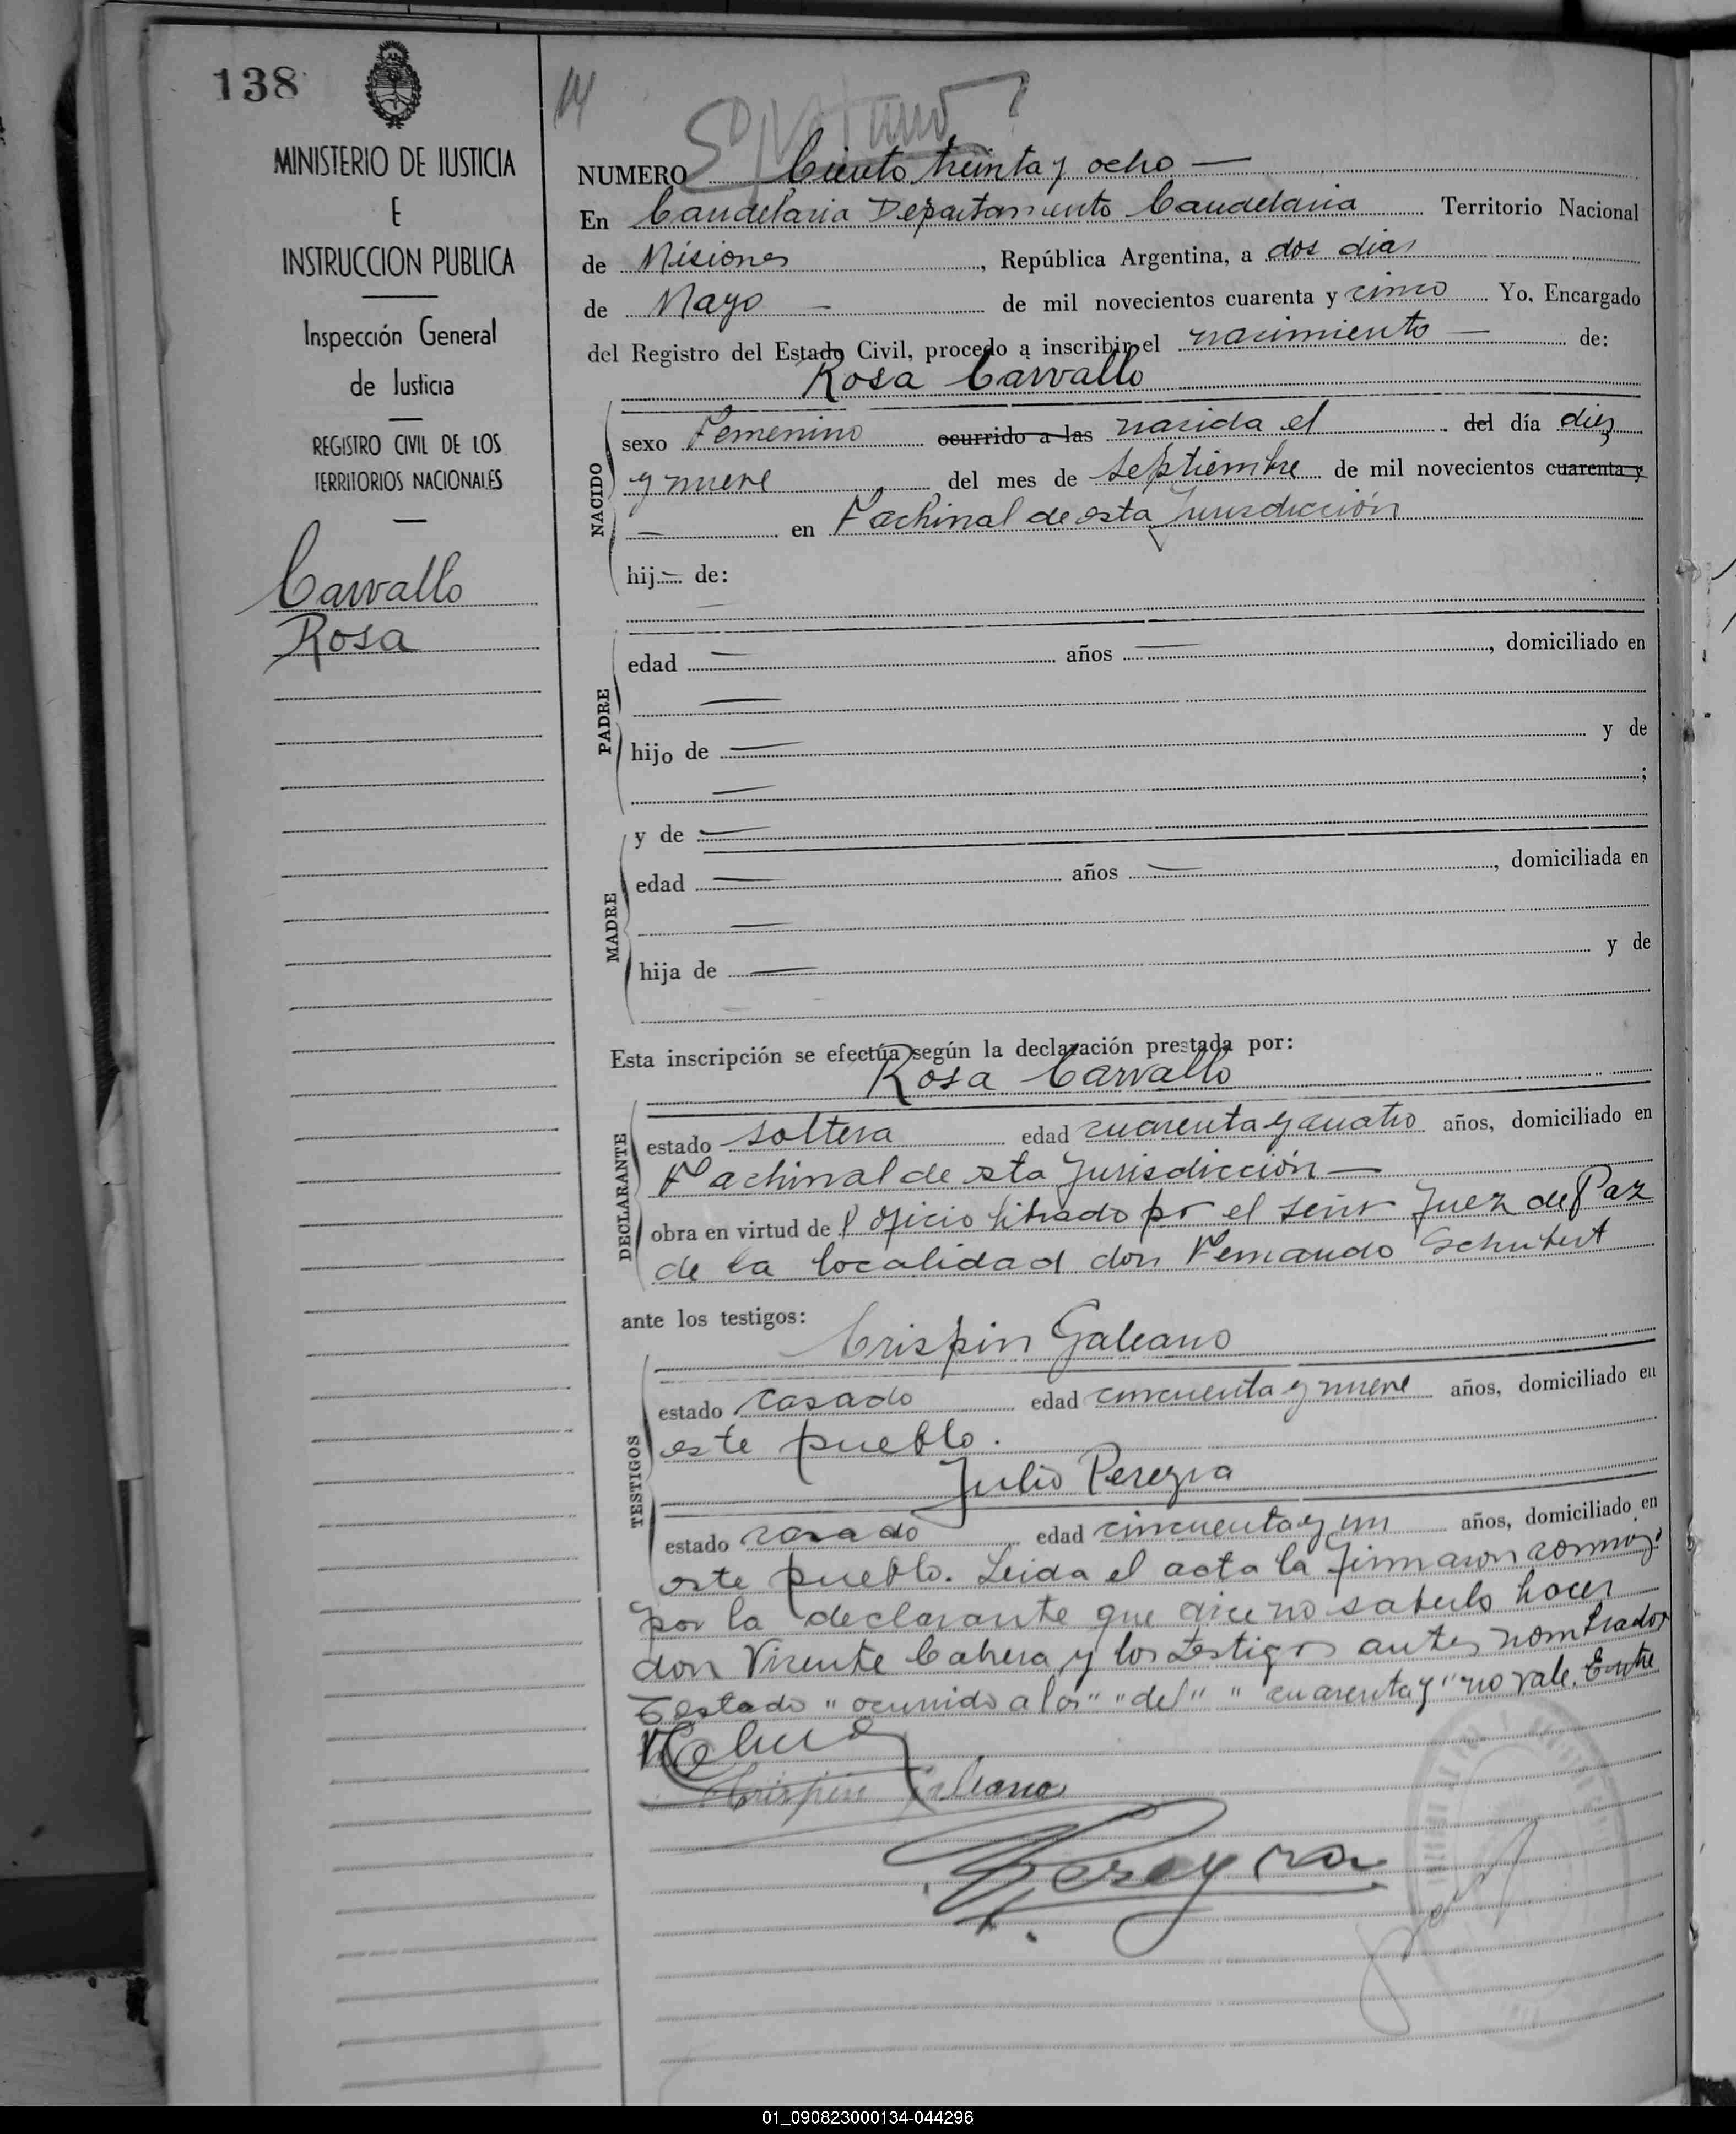 138
MINISTERIO DE JUSTICIA
E
INSTRUCCION PUBLICA
Inspección General
de Justicia
REGISTRO CIVIL DE LOS
TERRITORIOS NACIONALES
Carvallo
Rosa
14
NUMERO Ciento treinta y ocho —
En Candelaria Departamento Candelaria Territorio Nacional
de Misiones, República Argentina, a dos dias
de Mayo — de mil novecientos cuarenta y cinco Yo, Encargado
del Registro del Estado Civil, procedo a inscribir el nacimiento — de:
Rosa Carvallo
NACIDO
sexo Femenino ocurrido a las nacida el del día diez
y nueve del mes de septiembre de mil novecientos cuarenta y
— en Fachinal de esta Jurisdicción
hij— de:
—
PADRE
edad — años —, domiciliado en
—
hijo de — y de
— ;
y de —
MADRE
edad — años —, domiciliada en
—
hija de — y de
—
Esta inscripción se efectúa según la declaración prestada por:
Rosa Carvallo
DECLARANTE
estado soltera edad cuarenta y cuatro años, domiciliado en
Fachinal de esta Jurisdicción —
obra en virtud de oficio librado por el señor Juez de Paz
de la localidad don Fernando Schubert
ante los testigos:
Crispin Galeano
TESTIGOS
estado casado edad cincuenta y nueve años, domiciliado en
este pueblo.
Julio Pereyra
estado casado edad cincuenta y un años, domiciliado en
este pueblo. Leida el acta la firmaron conmigo
por la declarante que dice no saberlo hacer —
don Vicente Cabrera y los testigos antes nombrados
Testado "ocurrido a las" "del" "cuarenta y" no vale. Entre
Crispin Galeano
Pereyra
01_090823000134-044296